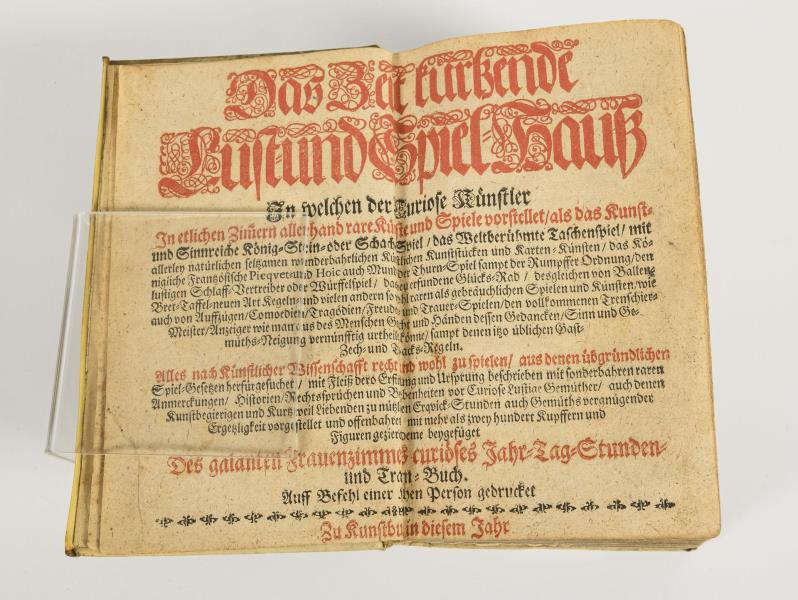 Das Zeit kürtzende
Lust und Spiel Hauß
In welchen der Curiose Künstler
In etlichen Zim̃ern allerhand rare Künste und Spiele vorstellet/als das Kunst-
und Sinnreiche König-Stein-oder Schach-Spiel/das Weltberühmte Taschenspiel/mit
allerley natürlichen seltzamen wunderbahrlichen Künstlichen Kunststücken und Karten-Künsten/das Kö-
nigliche Frantzösische Piequet-und Hoic auch Mum der Thurn-Spiel sampt der Rumpffer Ordnung/den
lustigen Schlaff-Vertreiber oder Würffelspiel/das erfundene Glücks-Rad/desgleichen von Ballen/
Bret-Taffel-neuen Art Kegeln und vielen andern so wohl raren als gebräuchlichen Spielen und Künsten/wie
auch von Auffzügen/Comoedien/Tragödien/Freude- und Trauer-Spielen/den vollkommenen Trenschier-
Meister/Anzeiger wie man aus des Menschen Gesicht und Händen dessen Gedancken/Sinn und Ge-
müths-Neigung vernünfftig urtheilen könne/sampt denen itzo üblichen Gast-
Zech- und -Regeln.
Alles nach Künstlicher Wissenschafft recht und wohl zu spielen/aus denen
Spiel-Gesetzen herfürgesuchet/mit Fleiß dero Erfindung und Ursprung beschrieben mit sonderbahren raren
Anmerckungen/Historien/Rechtssprüchen und Begebenheiten vor Curiose Lustige Gemüther/auch denen
Kunstbegierigen und Kurtzweil Liebenden zu nützlichen Erqvick-Stunden auch Gemüths vergnügender
Ergetzligkeit vorgestellet und offenbahret mit mehr als zwey hundert Kupffern und
Figuren gezieret deme beygefüget
Des galanten Frauenzimmers curiöses Jahr-Tag-Stunden-
und Traum-Buch.
Auff Befehl einer hohen Person gedrucket
Zu Kunstburg in diesem Jahr